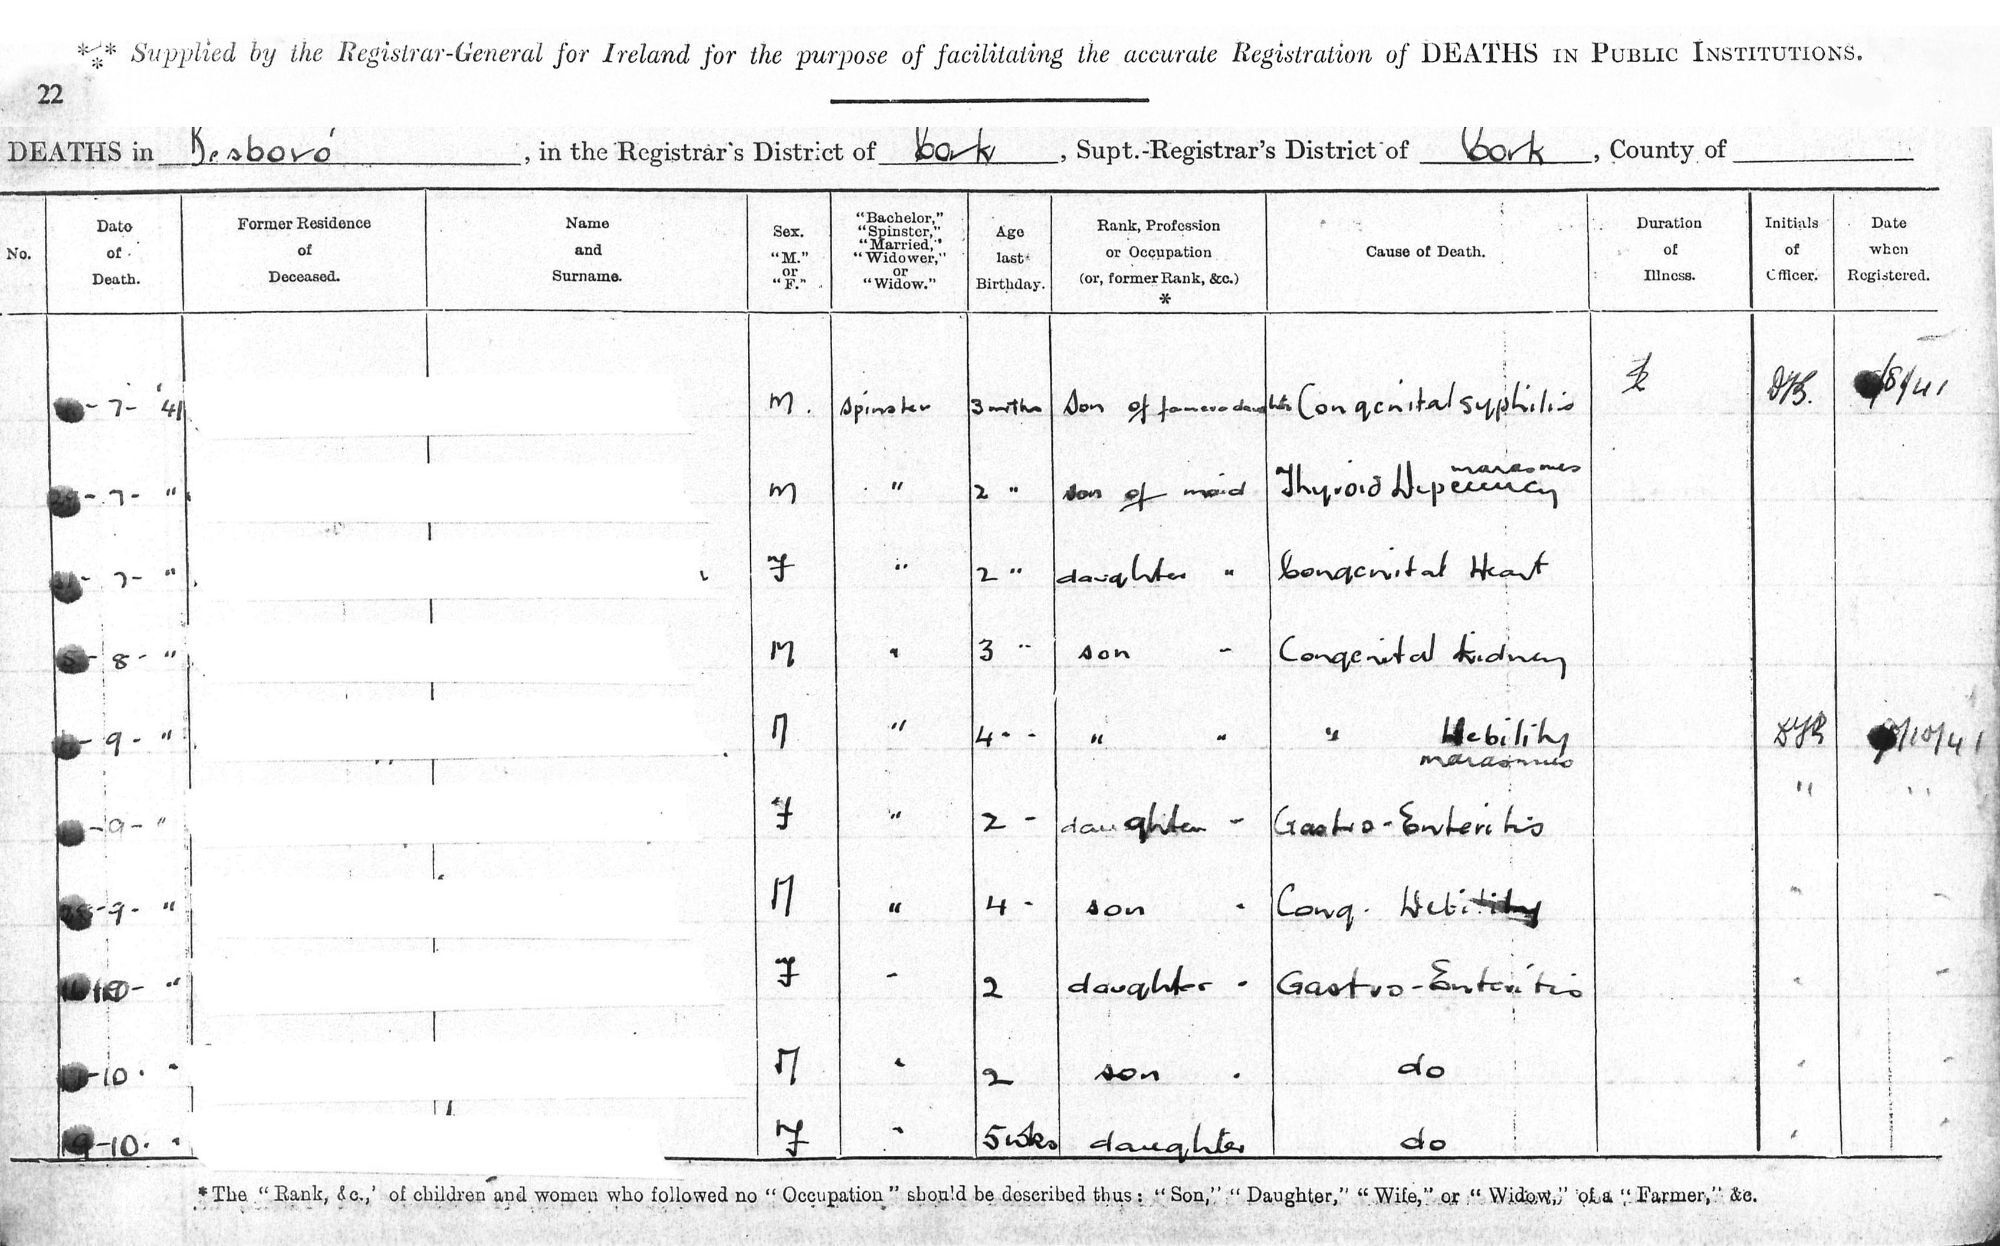 *** Supplied by the Registrar-General for Ireland for the purpose of facilitating the accurate Registration of DEATHS IN PUBLIC INSTITUTIONS.
22
DEATHS in Besboro', in the Registrar's District of Cork, Supt.-Registrar's District of Cork, County of
No. Date of Death. Former Residence of Deceased. Name and Surname. Sex. "M." or "F." "Bachelor," "Spinster," "Married," "Widower," or "Widow." Age last Birthday. Rank, Profession or Occupation (or, former Rank, &c.) * Cause of Death. Duration of Illness. Initials of Officer. Date when Registered.
-7- '41 M. Spinster 3 mths Son of farmers daughter Congenital syphilis /8/41
-7- " M " 2 " son of maid Thyroid marasmus
-7- " F " 2 " daughter " Congenital Heart
5-8- " M " 3 " son " Congenital Kidney
-9- " M " 4 " " " " Debility marasmus /10/41
-9- " F " 2 " daughter " Gastro-Enteritis " "
-9- " M " 4 " son " Cong. Debility " "
-10- " F " 2 daughter " Gastro-Enteritis " "
-10- " M " 2 son " do " "
19-10- " F " 5 wks daughter do " "
*The "Rank, &c.,' of children and women who followed no "Occupation" should be described thus: "Son," "Daughter," "Wife," or "Widow," of a "Farmer," &c.